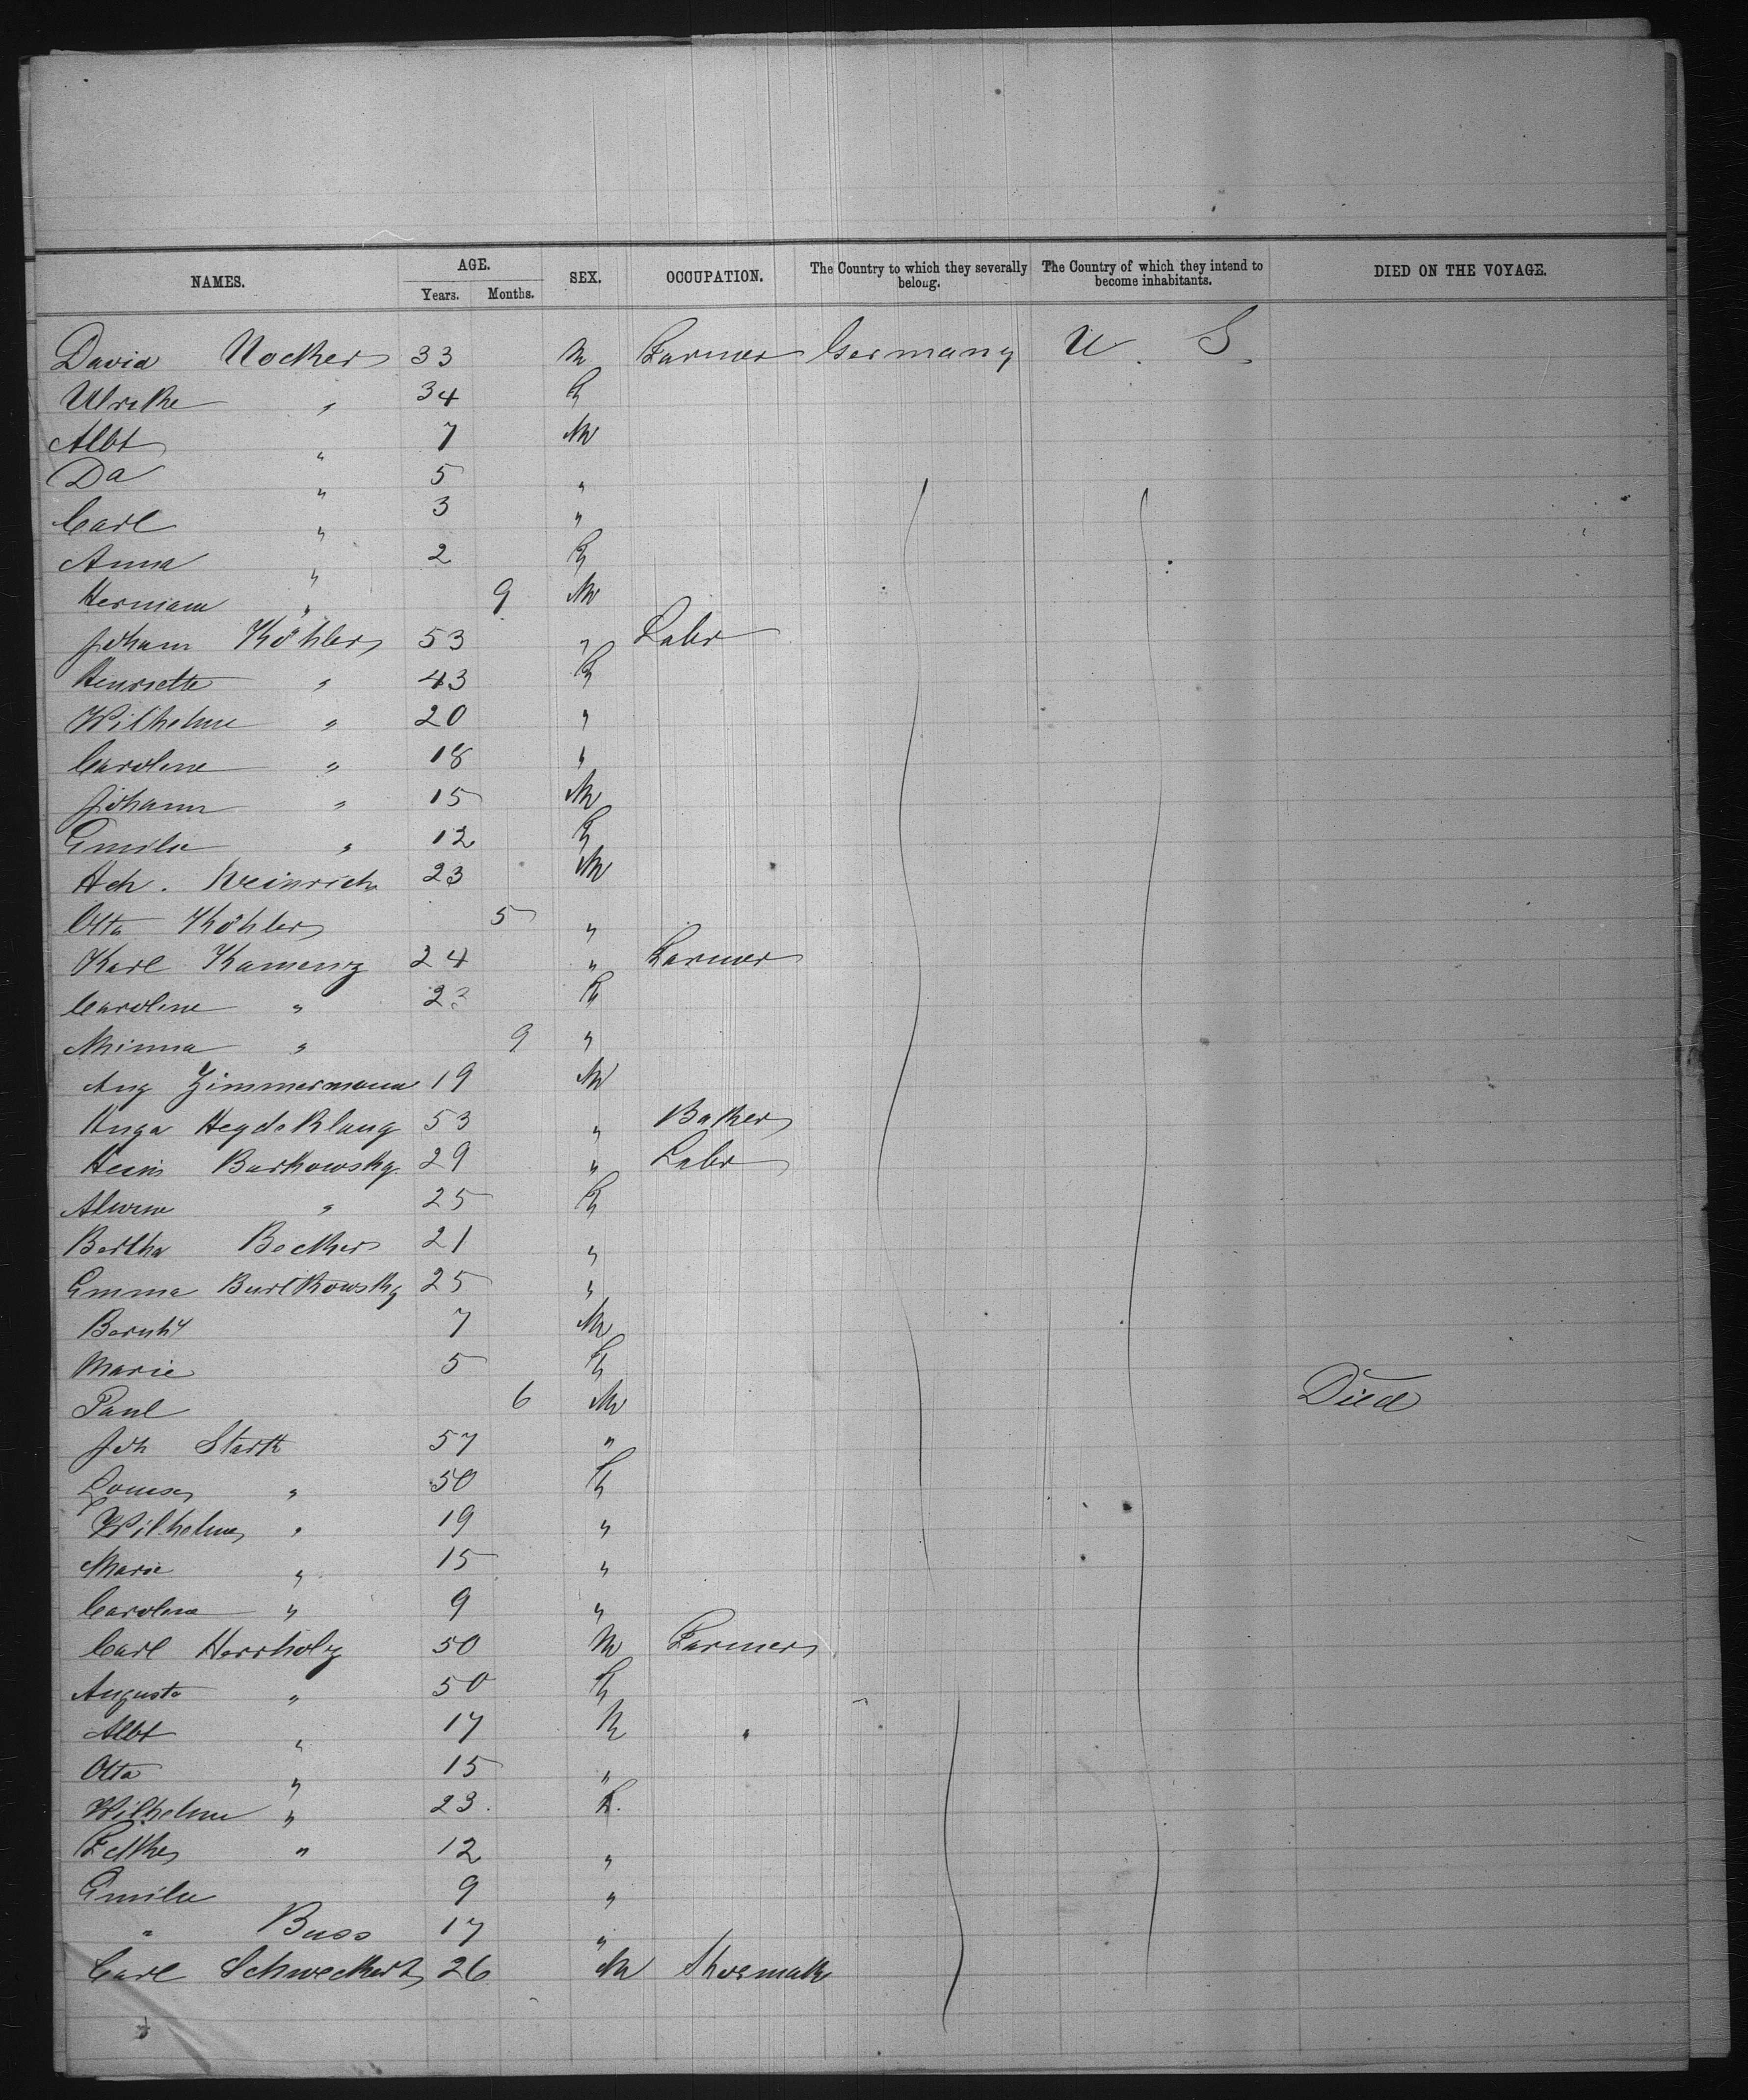 NAMES. AGE. SEX. OCCUPATION. The Country to which they severally belong. The Country of which they intend to become inhabitants. DIED ON THE VOYAGE.
Years. Months.
David Uocker 33 M Farmer Germany U. S.
Ulrike " 34 F
Albt " 7 M
Da " 5 "
Carl " 3 "
Anna " 2 F
Hermann " 9 M
Johann Köhler 53 " Labr
Henriette " 43 F
Wilhelme " 20 "
Caroline " 18 "
Johann " 15 M
Emilie " 12 F
Hch. Weinrich 23 M
Otto Köhler 5 "
Karl Kamenz 24 " Farmer
Caroline " 23 F
Minna " 9 "
Aug Zimmermann 19 M
Hugo Heydeklang 53 " Baker
Heinr Burkowsky 29 " Labr
Alwine " 25 F
Bertha Becker 21 "
Emma Burtkowsky 25 "
Bernhd 7 M
Marie 5 F
Paul 6 M Died
Joh Stark 57 "
Louise " 50 F
Wilhelme " 19 "
Marie " 15 "
Caroline " 9 "
Carl Herrholz 50 M Farmer
Auguste " 50 F
Albt " 17 M "
Otto " 15 "
Wilhelme " 23. F.
" 12 "
Emilie 9 "
" Buss 17 "
Carl Schweckert 26 M Shoemak